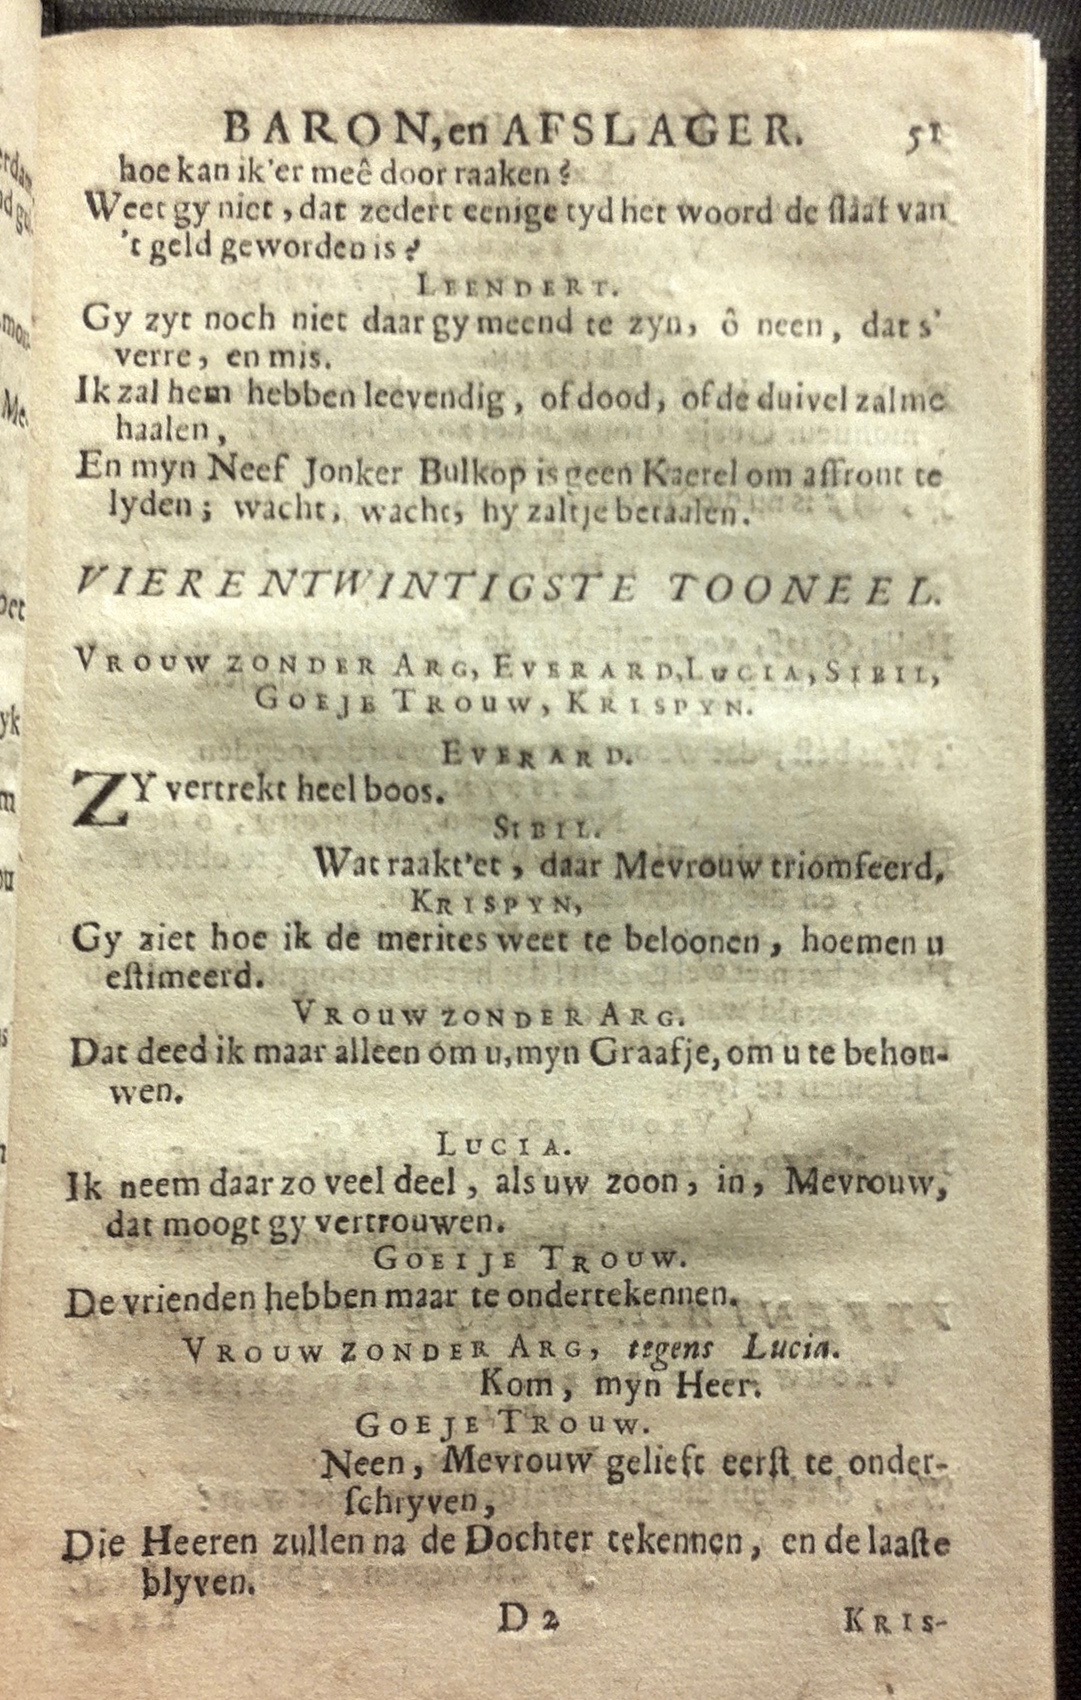 BARON, en AFSLAGER. 51
hoe kan ik'er meê door raaken?
Weet gy niet, dat zedert eenige tyd het woord de slaaf van
't geld geworden is?
LEENDERT.
Gy zyt noch niet daar gy meend te zyn, ô neen, dat s'
verre, en mis.
Ik zal hem hebben leevendig, of dood, of de duivel zal me
haalen,
En myn Neef Jonker Bulkop is geen Kaerel om affront te
lyden; wacht, wacht, hy zal tje betaalen.
VIERENTWINTIGSTE TOONEEL.
VROUW ZONDER ARG, EVERARD, LUCIA, SIBIL,
GOEJE TROUW, KRISPYN.
EVERARD.
ZY vertrekt heel boos.
SIBIL.
Wat raakt'et, daar Mevrouw triomfeerd,
KRISPYN,
Gy ziet hoe ik de merites weet te beloonen, hoemen u
estimeerd.
VROUW ZONDER ARG.
Dat deed ik maar alleen om u, myn Graafje, om u te behou-
wen.
LUCIA.
Ik neem daar zo veel deel, als uw zoon, in, Mevrouw,
dat moogt gy vertrouwen.
GOEIJE TROUW.
De vrienden hebben maar te ondertekennen.
VROUW ZONDER ARG, tegens Lucia.
Kom, myn Heer.
GOEJE TROUW.
Neen, Mevrouw gelieft eerst te onder-
schryven,
Die Heeren zullen na de Dochter tekennen, en de laaste
blyven.
D 2 KRIS-